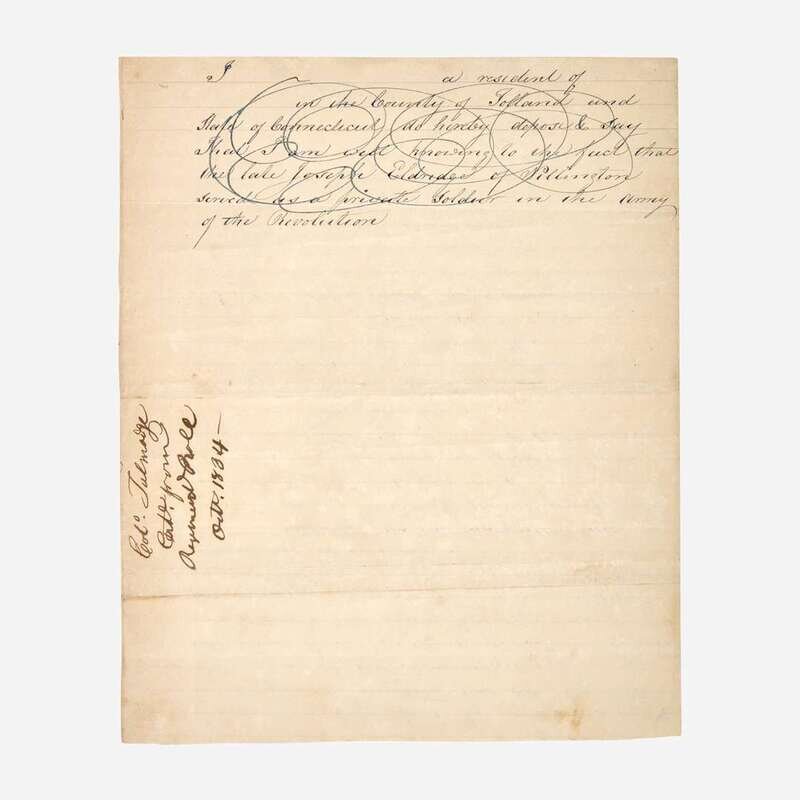 I a resident of
in the County of Tolland and
State of Connecticut do hereby depose & Say
That I am well knowing to the fact that
the late Joseph Eldredge of Willington
served as a private Soldier in the Army
of the Revolution
Colo. Talmadge
Certt. from
Regimentl Roll
Octr. 1834 —